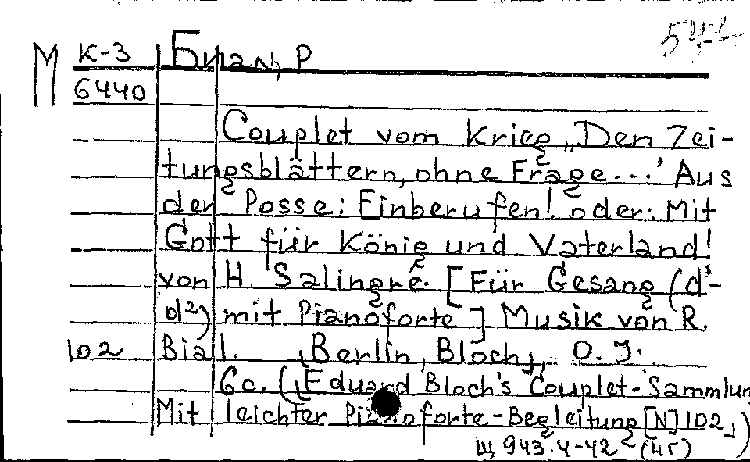 M К-3 Биал, Р
6440
Couplet vom Krieg „Den Zei-
tungsblättern, ohne Frage...' Aus
der Posse: Einberufen! oder: Mit
Gott für König und Vaterland!
von H Salingré. [Für Gesang (d'-
d²) mit Pianoforte] Musik von R.
102 Bial. Berlin, Bloch, O. J.
6c. (Eduard Bloch's Couplet-Sammlun
Mit leichter Pianoforte-Begleitung [N] 102)
Щ 943.4-42 (45)